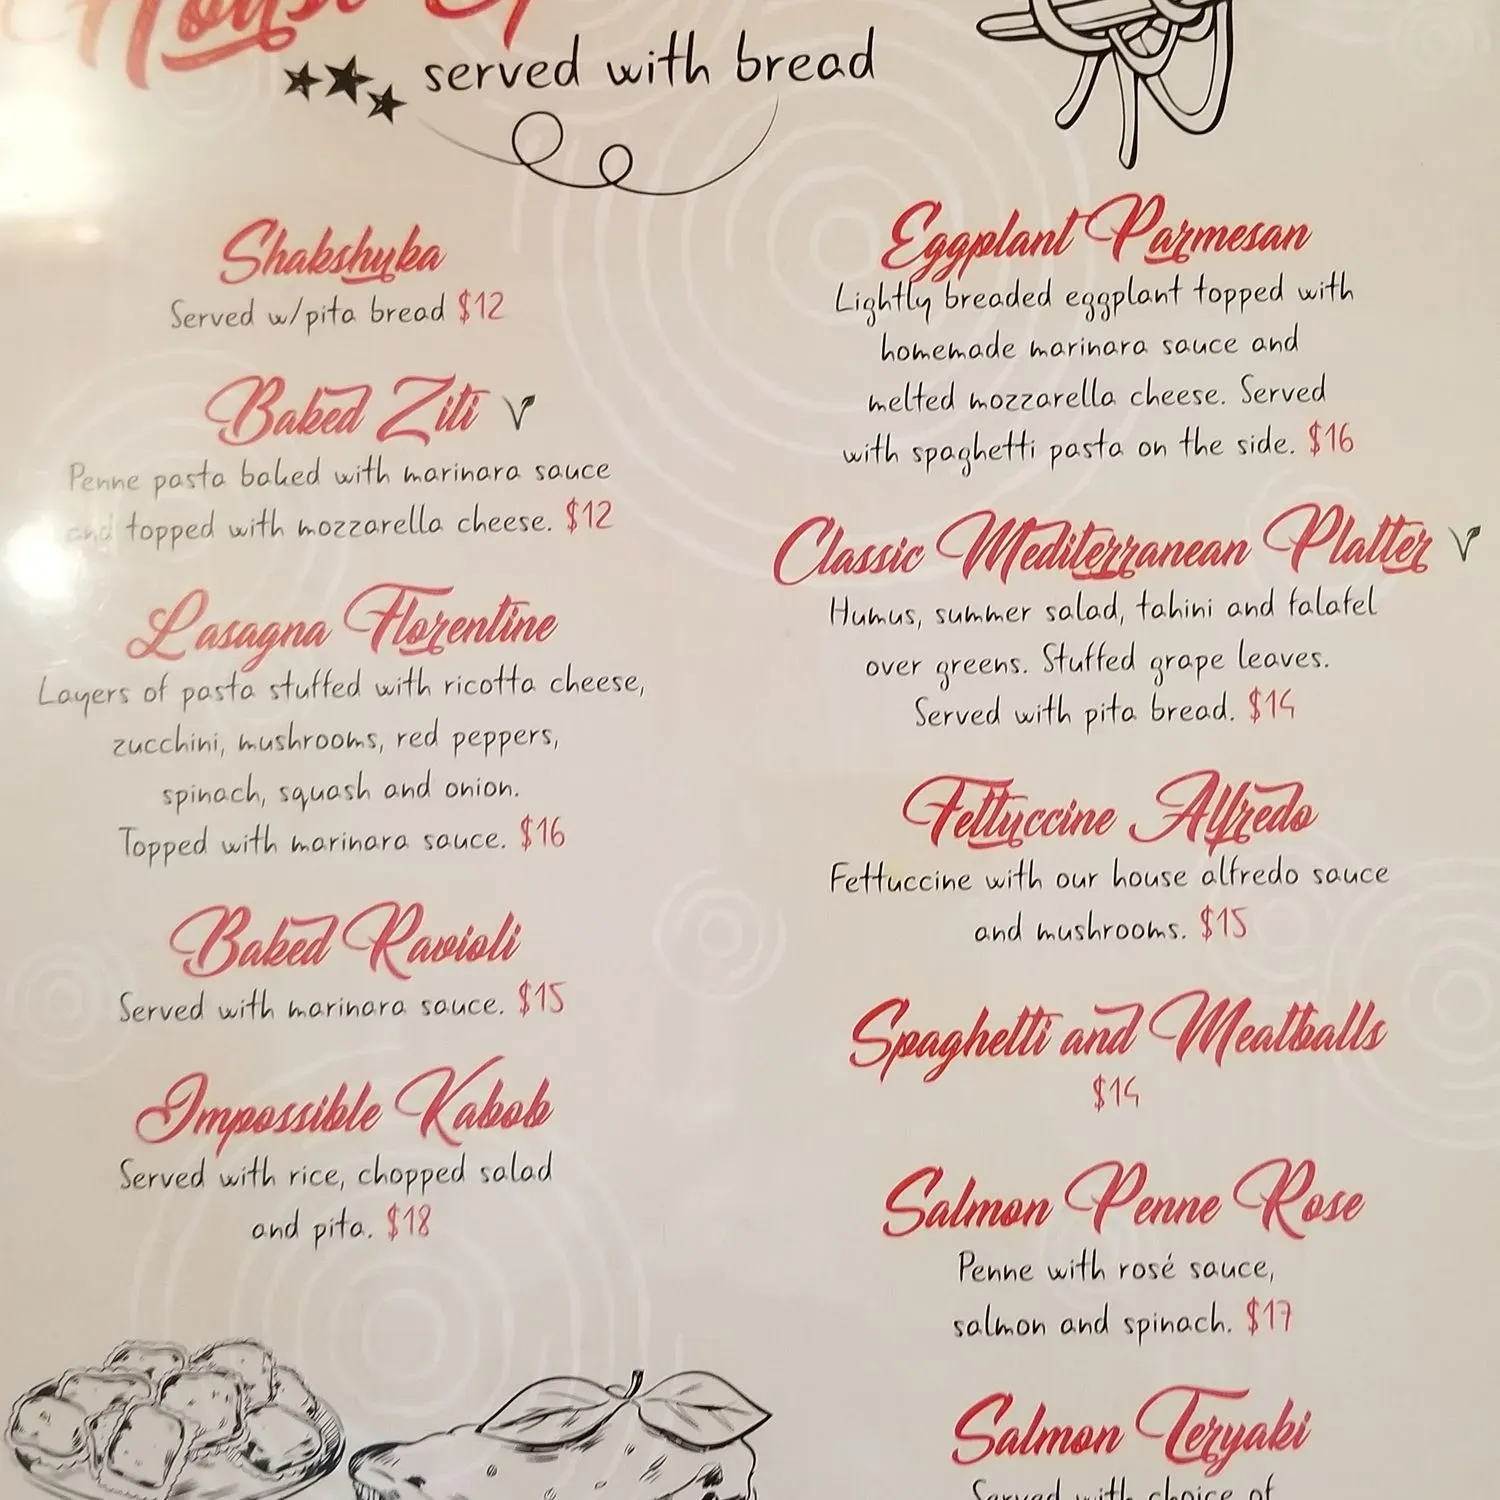 House
served with bread
Shakshuka
Served w/pita bread $12
Baked Ziti V
Penne pasta baked with marinara sauce
and topped with mozzarella cheese. $12
Lasagna Florentine
Layers of pasta stuffed with ricotta cheese,
zucchini, mushrooms, red peppers,
spinach, squash and onion.
Topped with marinara sauce. $16
Baked Ravioli
Served with marinara sauce. $15
Impossible Kabob
Served with rice, chopped salad
and pita. $18
Eggplant Parmesan
Lightly breaded eggplant topped with
homemade marinara sauce and
melted mozzarella cheese. Served
with spaghetti pasta on the side. $16
Classic Mediterranean Platter V
Humus, summer salad, tahini and falafel
over greens. Stuffed grape leaves.
Served with pita bread. $14
Fettuccine Alfredo
Fettuccine with our house alfredo sauce
and mushrooms. $15
Spaghetti and Meatballs
$14
Salmon Penne Rose
Penne with rosé sauce,
salmon and spinach. $17
Salmon Teryaki
Served with choice of